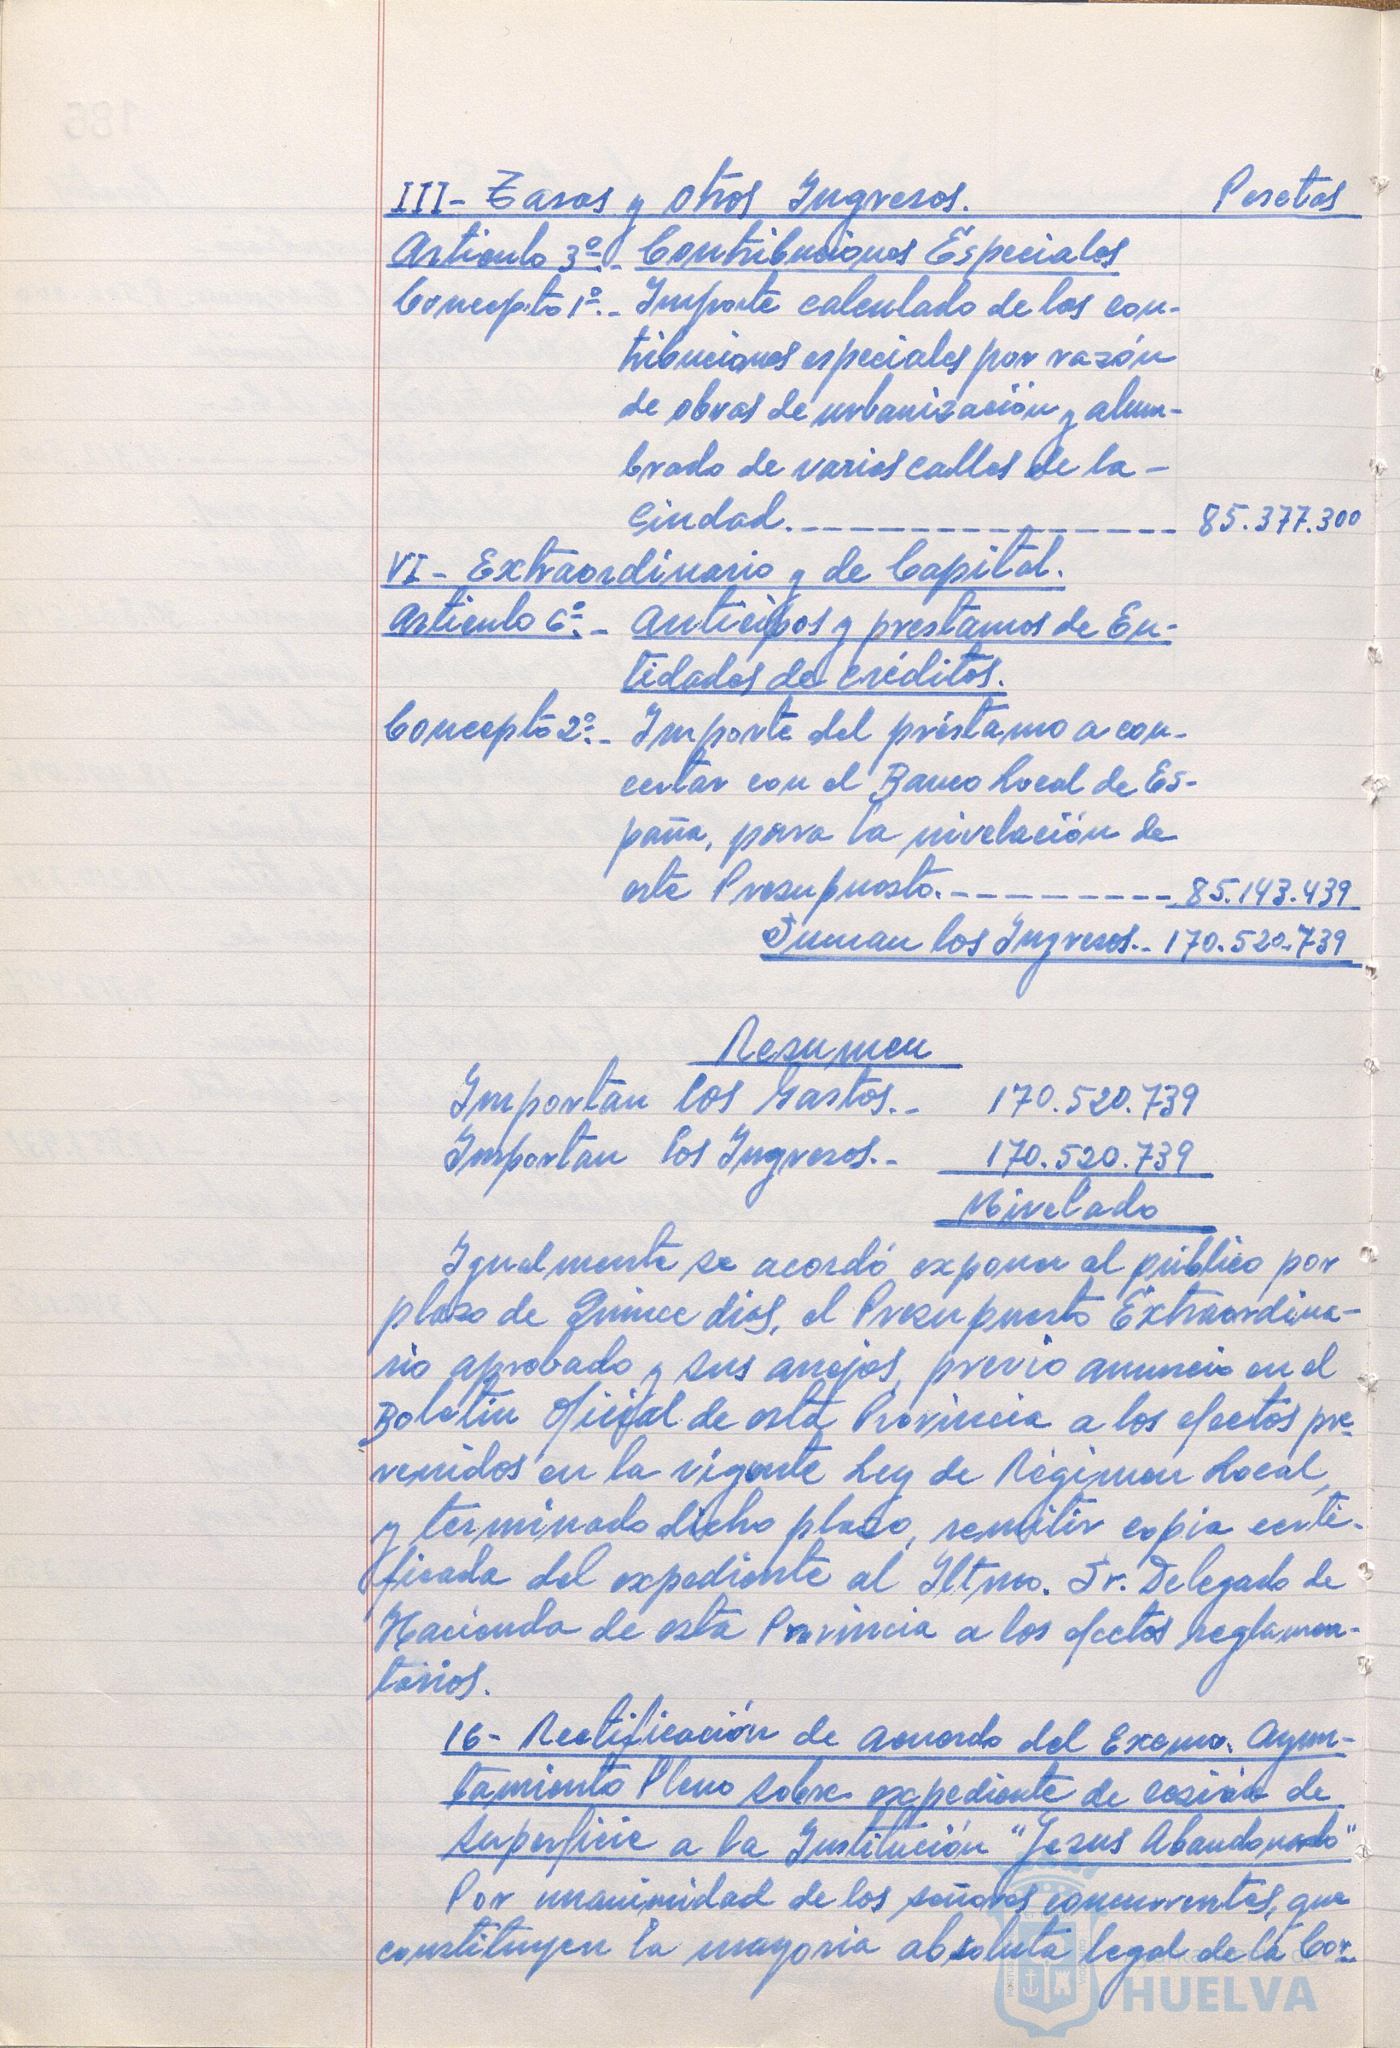 III- Tasas y otros Ingresos. Pesetas
Artículo 3º.- Contribuciones Especiales
Concepto 1º.- Importe calculado de las con-
tribuciones especiales por razón
de obras de urbanización y alum-
brado de varias calles de la -
Ciudad.---------------- 85.377.300
VI- Extraordinario y de Capital.
Artículo 6º.- Anticipos y prestamos de En-
tidades de créditos.
Concepto 2º.- Importe del préstamo a con-
certar con el Banco Local de Es-
paña, para la nivelación de
este Presupuesto.--------- 85.143.439
Suman los Ingresos.- 170.520.739
Resumen
Importan los Gastos.- 170.520.739
Importan los Ingresos.- 170.520.739
Nivelado
Igualmente se acordó exponer al público por
plazo de Quince dias, el Presupuesto Extraordina-
rio aprobado y sus anejos, previo anuncio en el
Boletin Oficial de esta Provincia a los efectos pre-
venidos en la vigente Ley de Régimen Local,
y terminado dicho plazo, remitir copia certi-
ficada del expediente al Iltmo. Sr. Delegado de
Hacienda de esta Provincia a los efectos reglamen-
tarios.
16- Rectificación de acuerdo del Excmo. Ayun-
tamiento Pleno sobre expediente de cesión de
superficie a la Institución "Jesus Abandonado"
Por unanimidad de los señores concurrentes, que
constituyen la mayoria absoluta legal de la Cor-
HUELVA